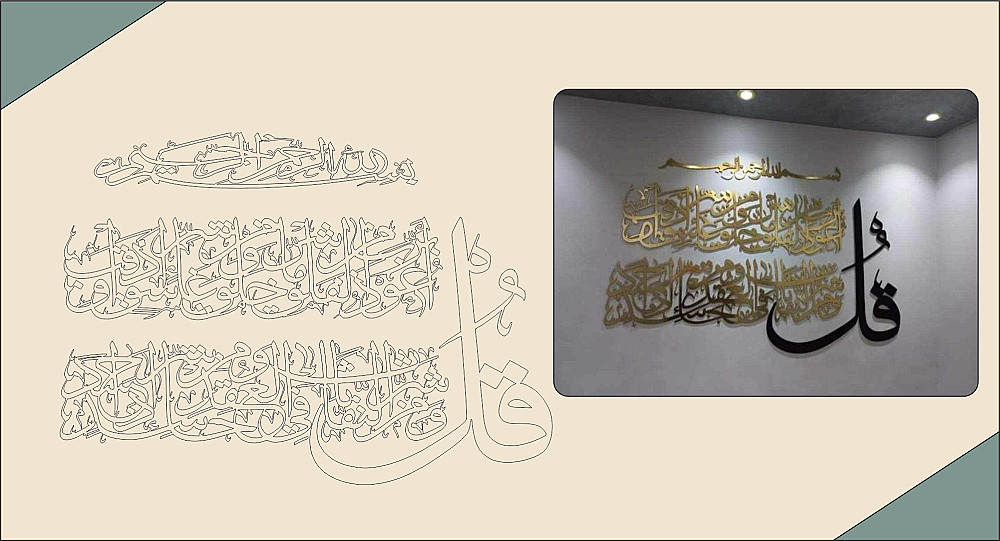 بسم الله الرحمن الرحيم
قل
أعوذ برب الفلق من شر ما خلق ومن شر غاسق إذا وقب
ومن شر النفاثات في العقد ومن شر حاسد إذا حسد
بسم الله الرحمن الرحيم
قل
أعوذ برب الفلق من شر ما خلق ومن شر غاسق إذا وقب
ومن شر النفاثات في العقد ومن شر حاسد إذا حسد